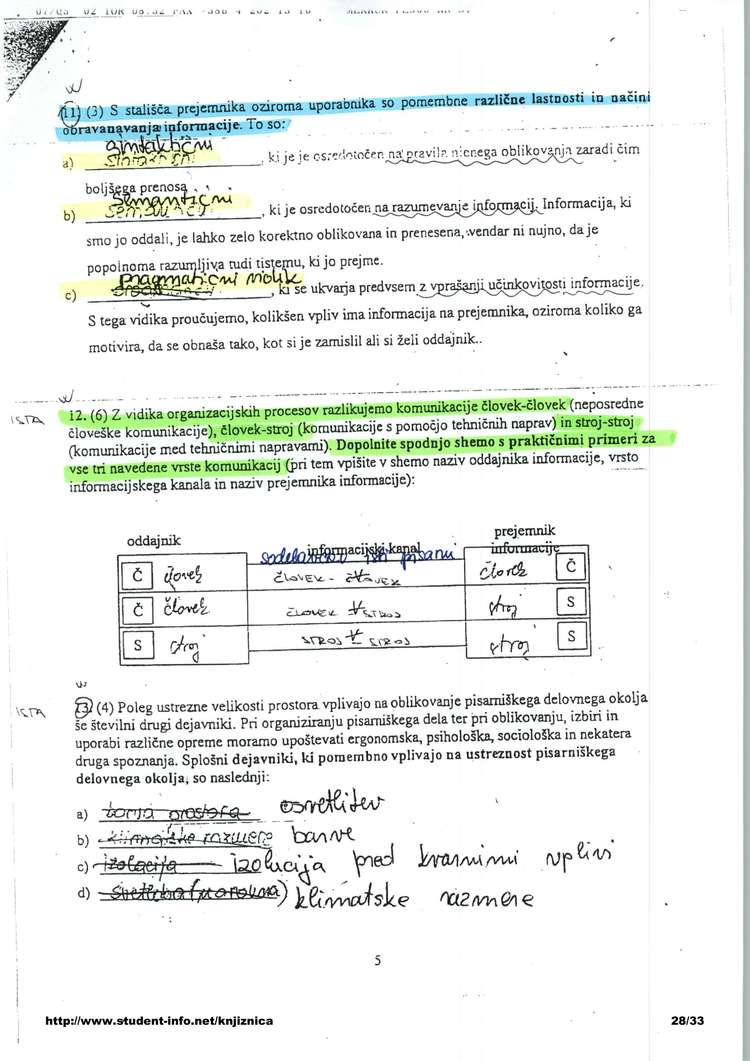 02 TOR 08:32 FAX
W
11) (3) S stališča prejemnika oziroma uporabnika so pomembne različne lastnosti in načini
obravanavanja informacije. To so:
a) sintaktični, ki je je osredotočen na pravila njenega oblikovanja zaradi čim
boljšega prenosa
b) semantični, ki je osredotočen na razumevanje informacij. Informacija, ki
smo jo oddali, je lahko zelo korektno oblikovana in prenesena, vendar ni nujno, da je
popolnoma razumljiva tudi tistemu, ki jo prejme.
c) pragmatični, ki se ukvarja predvsem z vprašanji učinkovitosti informacije.
S tega vidika proučujemo, kolikšen vpliv ima informacija na prejemnika, oziroma koliko ga
motivira, da se obnaša tako, kot si je zamislil ali si želi oddajnik..
W
ISTA 12. (6) Z vidika organizacijskih procesov razlikujemo komunikacije človek-človek (neposredne
človeške komunikacije), človek-stroj (komunikacije s pomočjo tehničnih naprav) in stroj-stroj
(komunikacije med tehničnimi napravami). Dopolnite spodnjo shemo s praktičnimi primeri za
vse tri navedene vrste komunikacij (pri tem vpišite v shemo naziv oddajnika informacije, vrsto
informacijskega kanala in naziv prejemnika informacije):
oddajnik informacijski kanal prejemnik
informacije
Č človek ČLOVEK - ČLOVEK človek Č
Č človek ČLOVEK STROJ stroj S
S stroj STROJ STROJ stroj S
W
ISTA 13 (4) Poleg ustrezne velikosti prostora vplivajo na oblikovanje pisarniškega delovnega okolja
še številni drugi dejavniki. Pri organiziranju pisarniškega dela ter pri oblikovanju, izbiri in
uporabi različne opreme moramo upoštevati ergonomska, psihološka, sociološka in nekatera
druga spoznanja. Splošni dejavniki, ki pomembno vplivajo na ustreznost pisarniškega
delovnega okolja, so naslednji:
a) osvetlitev
b) barve
c) izolacija izolacija pred kvarnimi vplivi
d) klimatske razmere
5
http://www.student-info.net/knjiznica 28/33